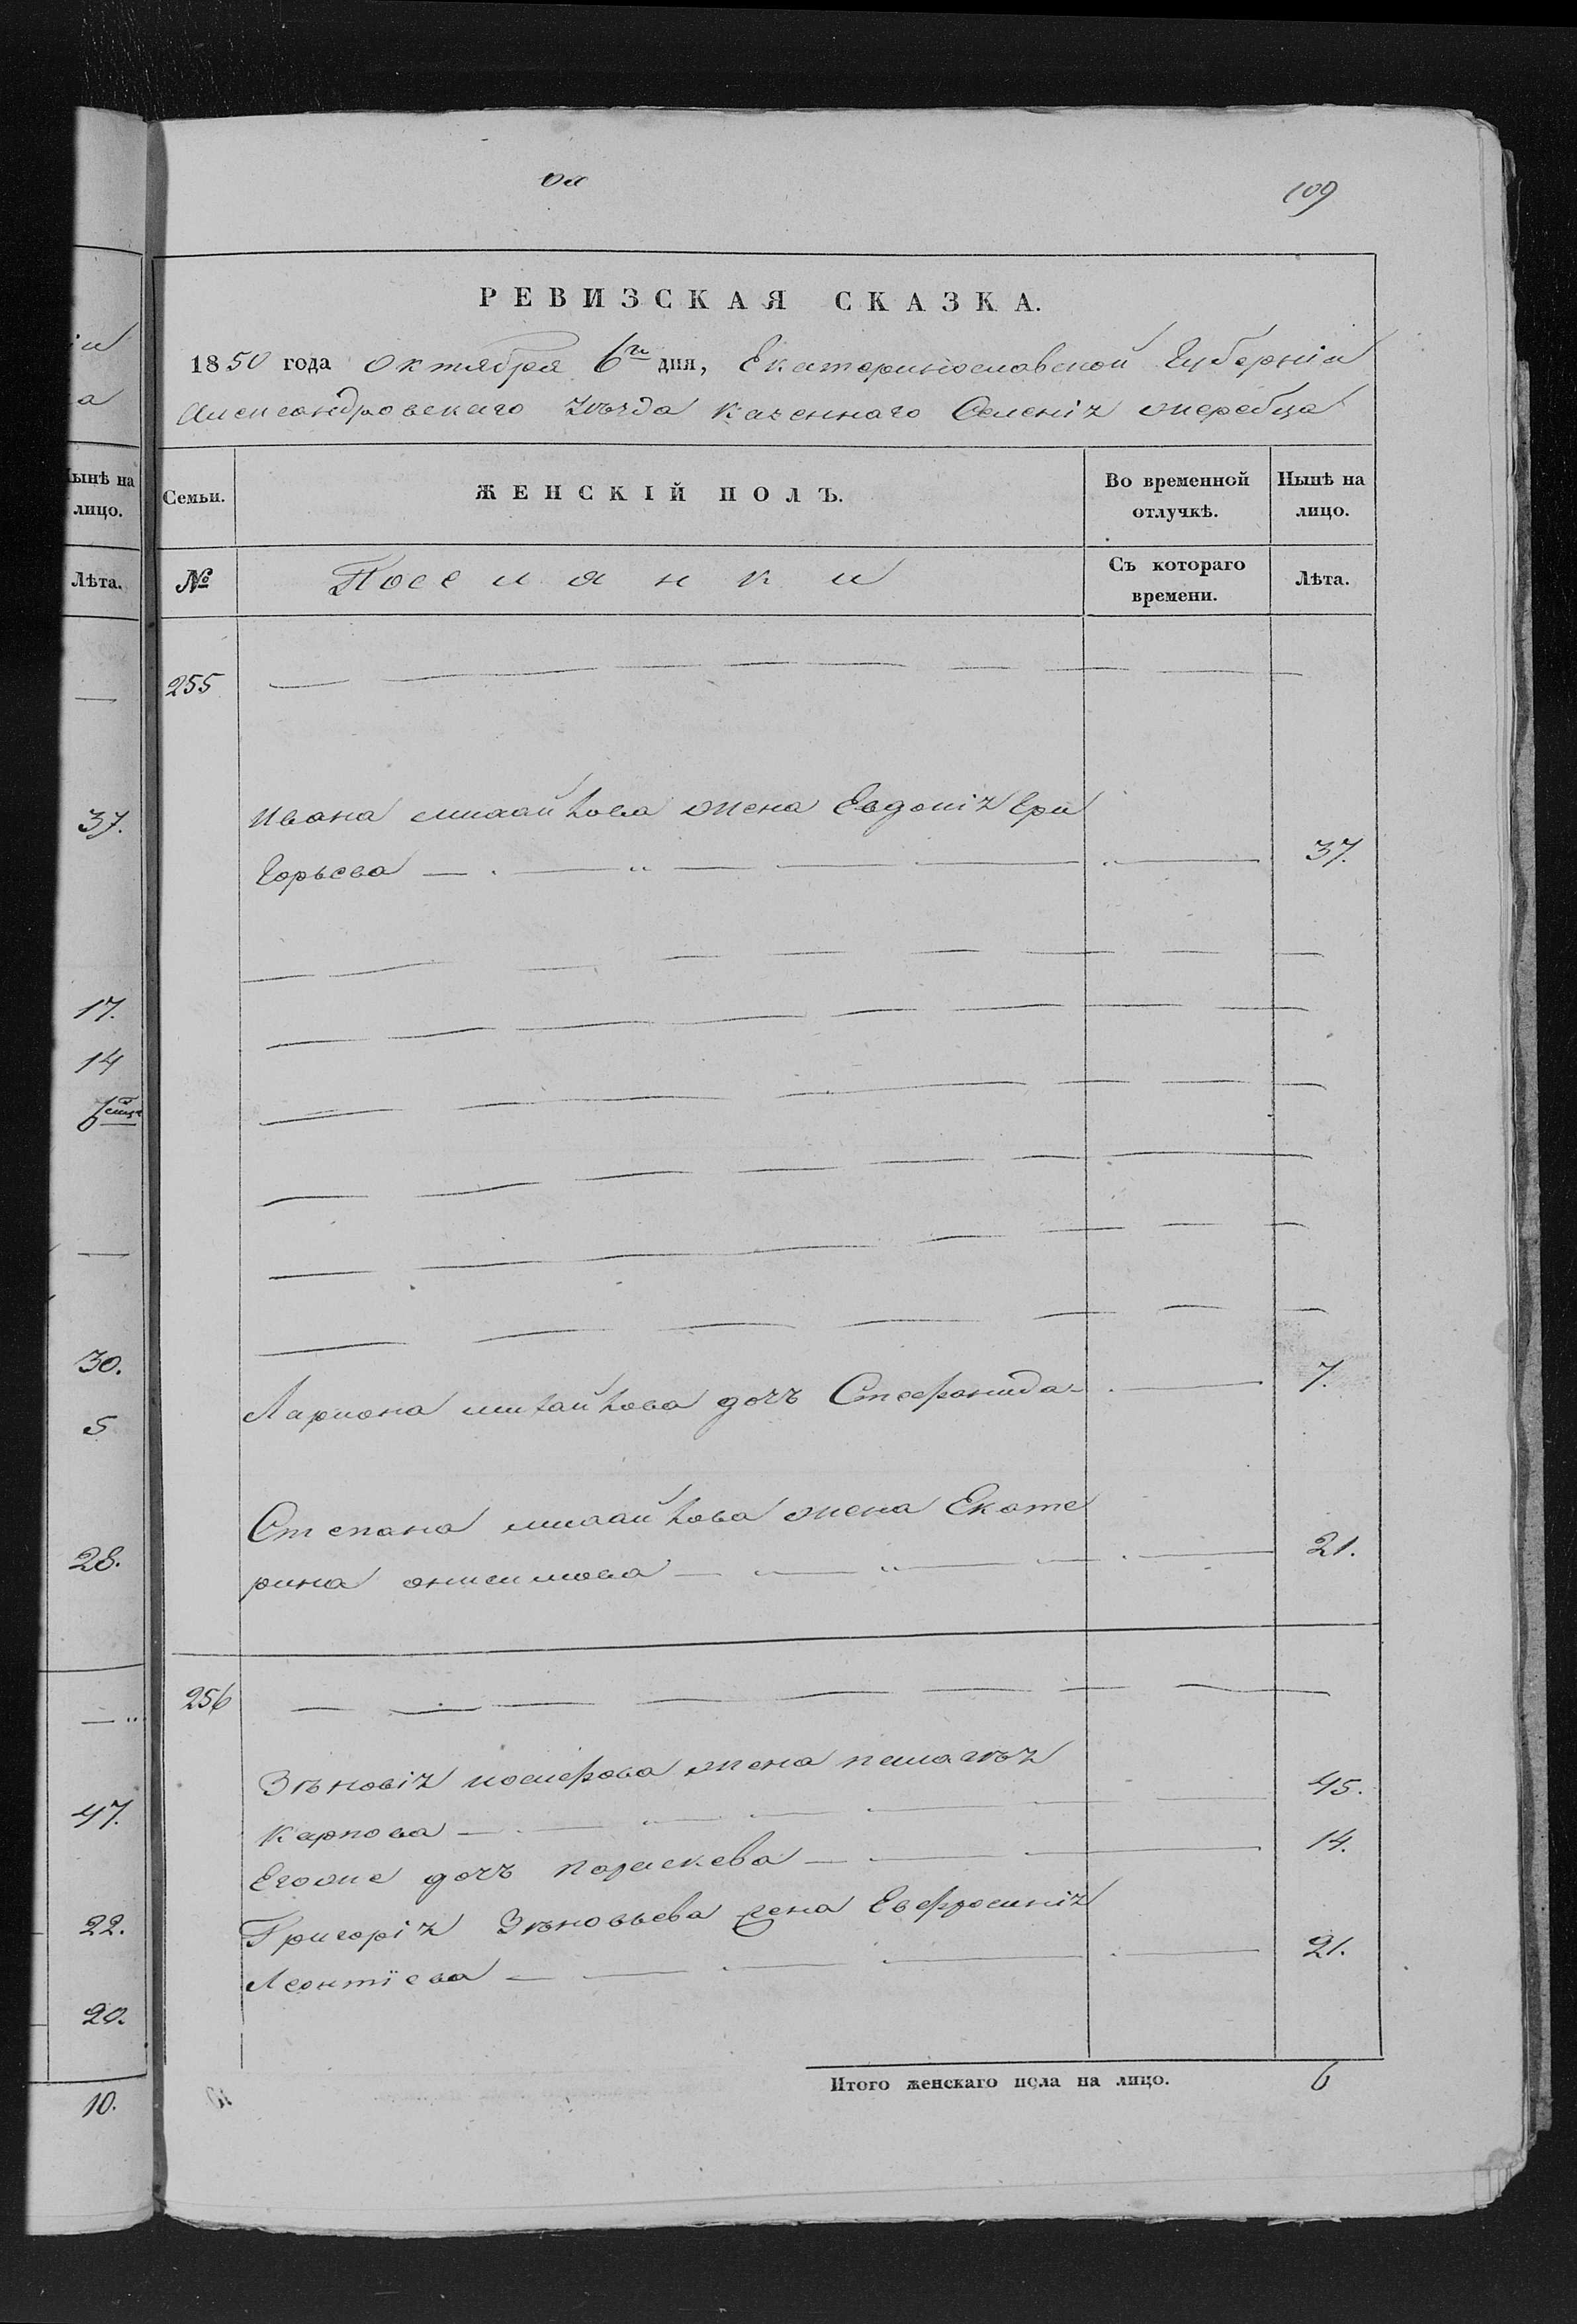 109
РЕВИЗСКАЯ СКАЗКА.
1850 года октября 6го дня, Екатеринославской Губерніи
Александровскаго уѣзда казеннаго Селенія жеребца
Нынѣ на лицо.
Семьи.
ЖЕНСКІЙ ПОЛЪ.
Во временной отлучкѣ.
Нынѣ на лицо.
Лѣта.
№
Поселянки
Съ котораго времени.
Лѣта.
255
37.
Ивана михайлова жена Евдокія Гри
горьева 37.
17.
14
30.
Лариона михайлова дочъ Стефанида 7.
5
Степана михайлова жена Екате
28.
рина онисимова 21.
256
Зѣновія иосифова жена пелагѣя
47.
Карпова 45.
Егоже дочъ параскева 14.
22.
Григорія Зѣновьева жена Евфросинія
Леонтіева 21.
20.
Итого женскаго пола на лицо. 6
10.